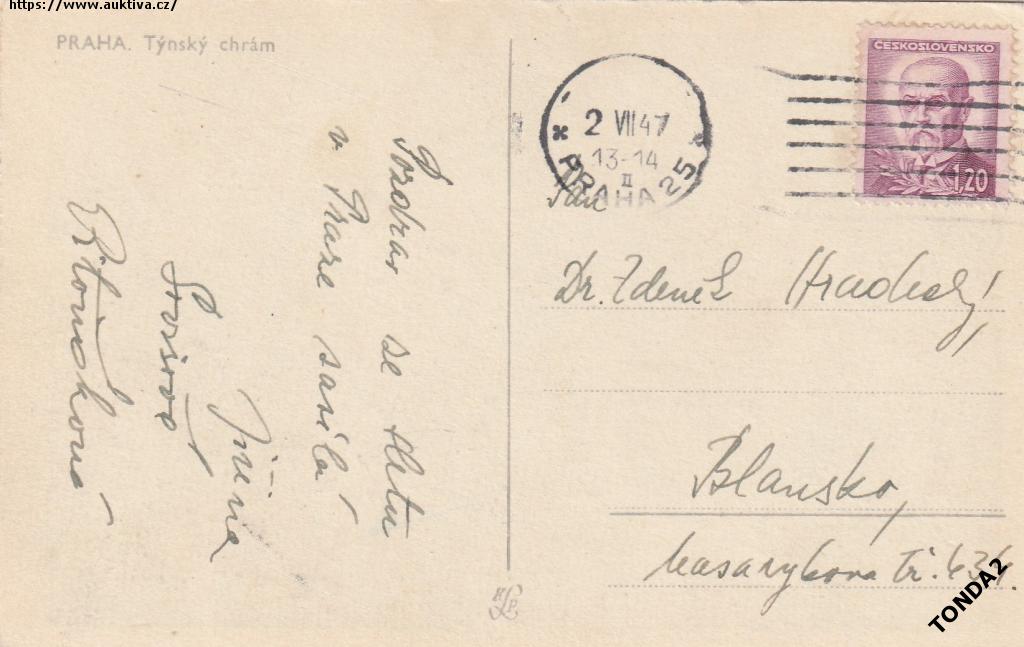 https://www.auktiva.cz/
PRAHA. Týnský chrám
ČESKOSLOVENSKO
1,20
2 VII 47
13-14
II
PRAHA 25
Pan
Dr. Zdeněk Hradecký,
Blansko,
Masarykova tř. 634.
Pozdrav se sletu
v Praze
Jiřina
TONDA2